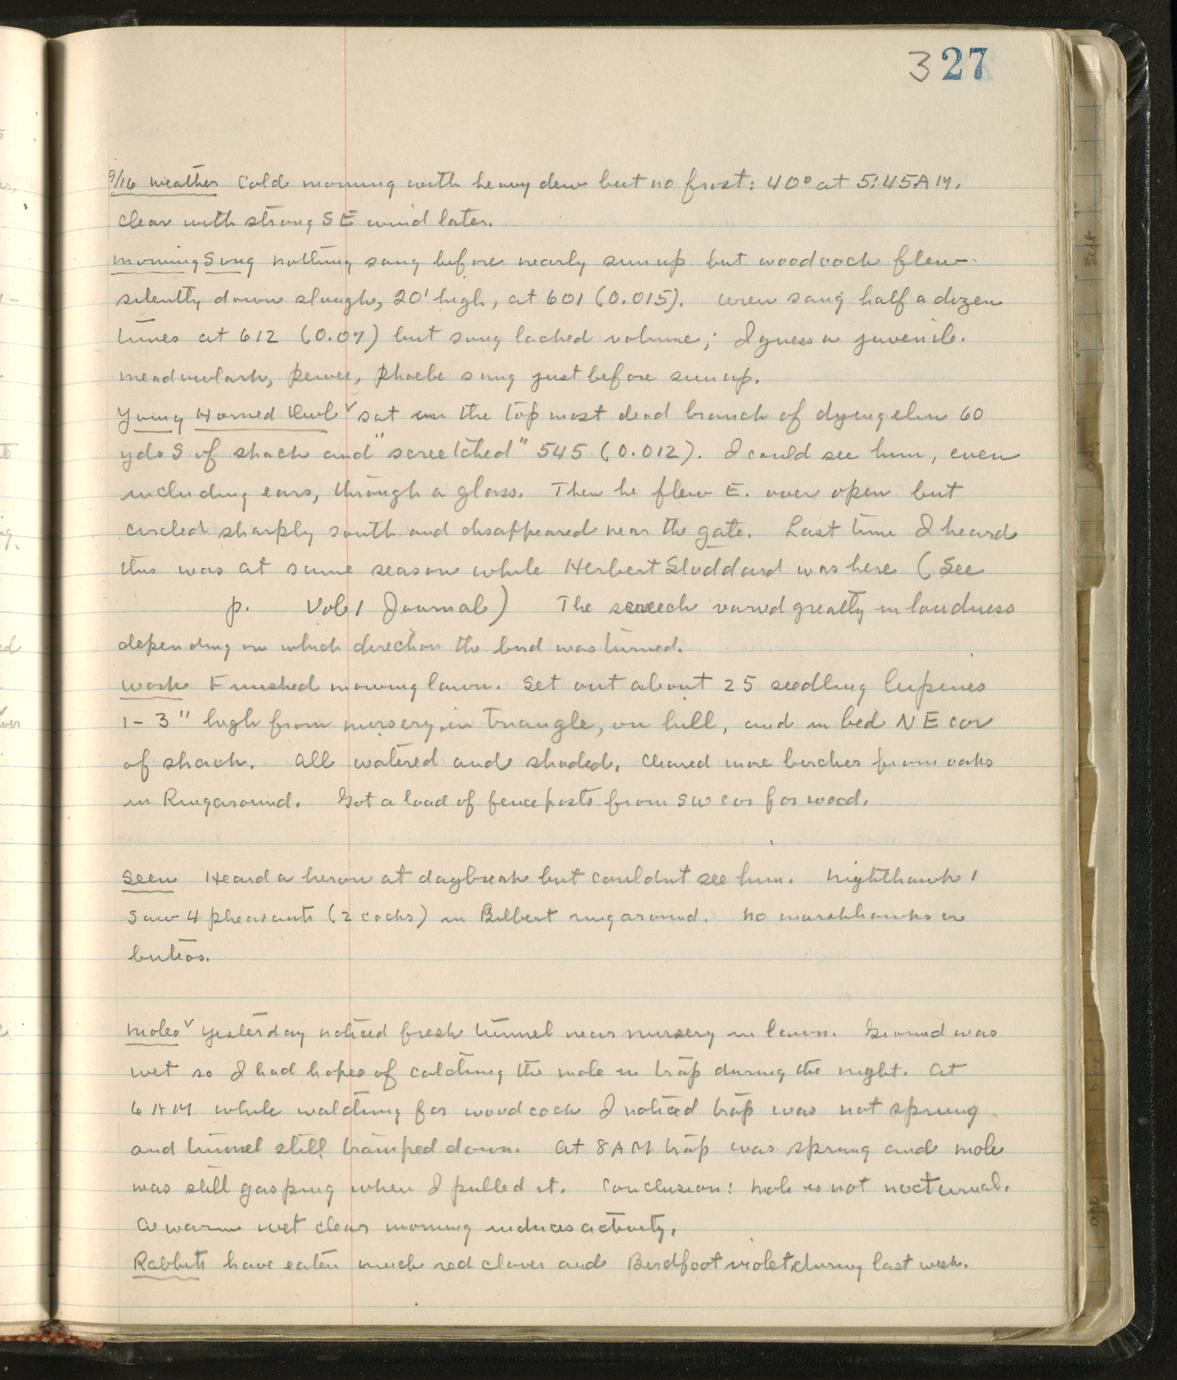 327
9/16 Weather Cold morning with heavy dew but no frost: 40° at 5:45 A.M.
Clear with strong SE wind later.
Morning Song Nothing sang before nearly sunup but woodcock flew
silently down slough, 20' high, at 601 (0.015). Wren sang half a dozen
times at 612 (0.07) but song lacked volume; I guess a juvenile.
Meadowlark, pewee, phoebe sang just before sunup.
Young Horned Owl ✓ sat on the top most dead branch of dying elm 60
yds S of shack and "screetched" 545 (0.012). I could see him, even
including ears, through a glass. Then he flew E. over open but
circled sharply south and disappeared near the gate. Last time I heard
this was at same season while Herbert Stoddard was here (See
p. Vol 1 Journal) The screech varied greatly in loudness
depending on which direction the bird was turned.
Work Finished mowing lawn. Set out about 25 seedling lupines
1-3" high from nursery, in triangle, on hill, and in bed NE cor
of shack. All watered and shaded. Cleared more birches from oaks
in Ringaround. Got a load of fenceposts from SW cor for wood.
Seen Heard a heron at daybreak but couldnt see him. Nighthawk 1
Saw 4 pheasants (2 cocks) in Bilbert ringaround. No marshhawks or
buteos.
Moles ✓ Yesterday noticed fresh tunnel near nursery in lawn. Ground was
wet so I had hopes of catching the mole in trap during the night. At
6 AM while watching for woodcock I noticed trap was not sprung
and tunnel still tramped down. At 8 AM trap was sprung and mole
was still gasping when I pulled it. Conclusion: mole is not nocturnal.
A warm wet clear morning induces activity.
Rabbits have eaten much red clover and Birdfoot violet during last week.